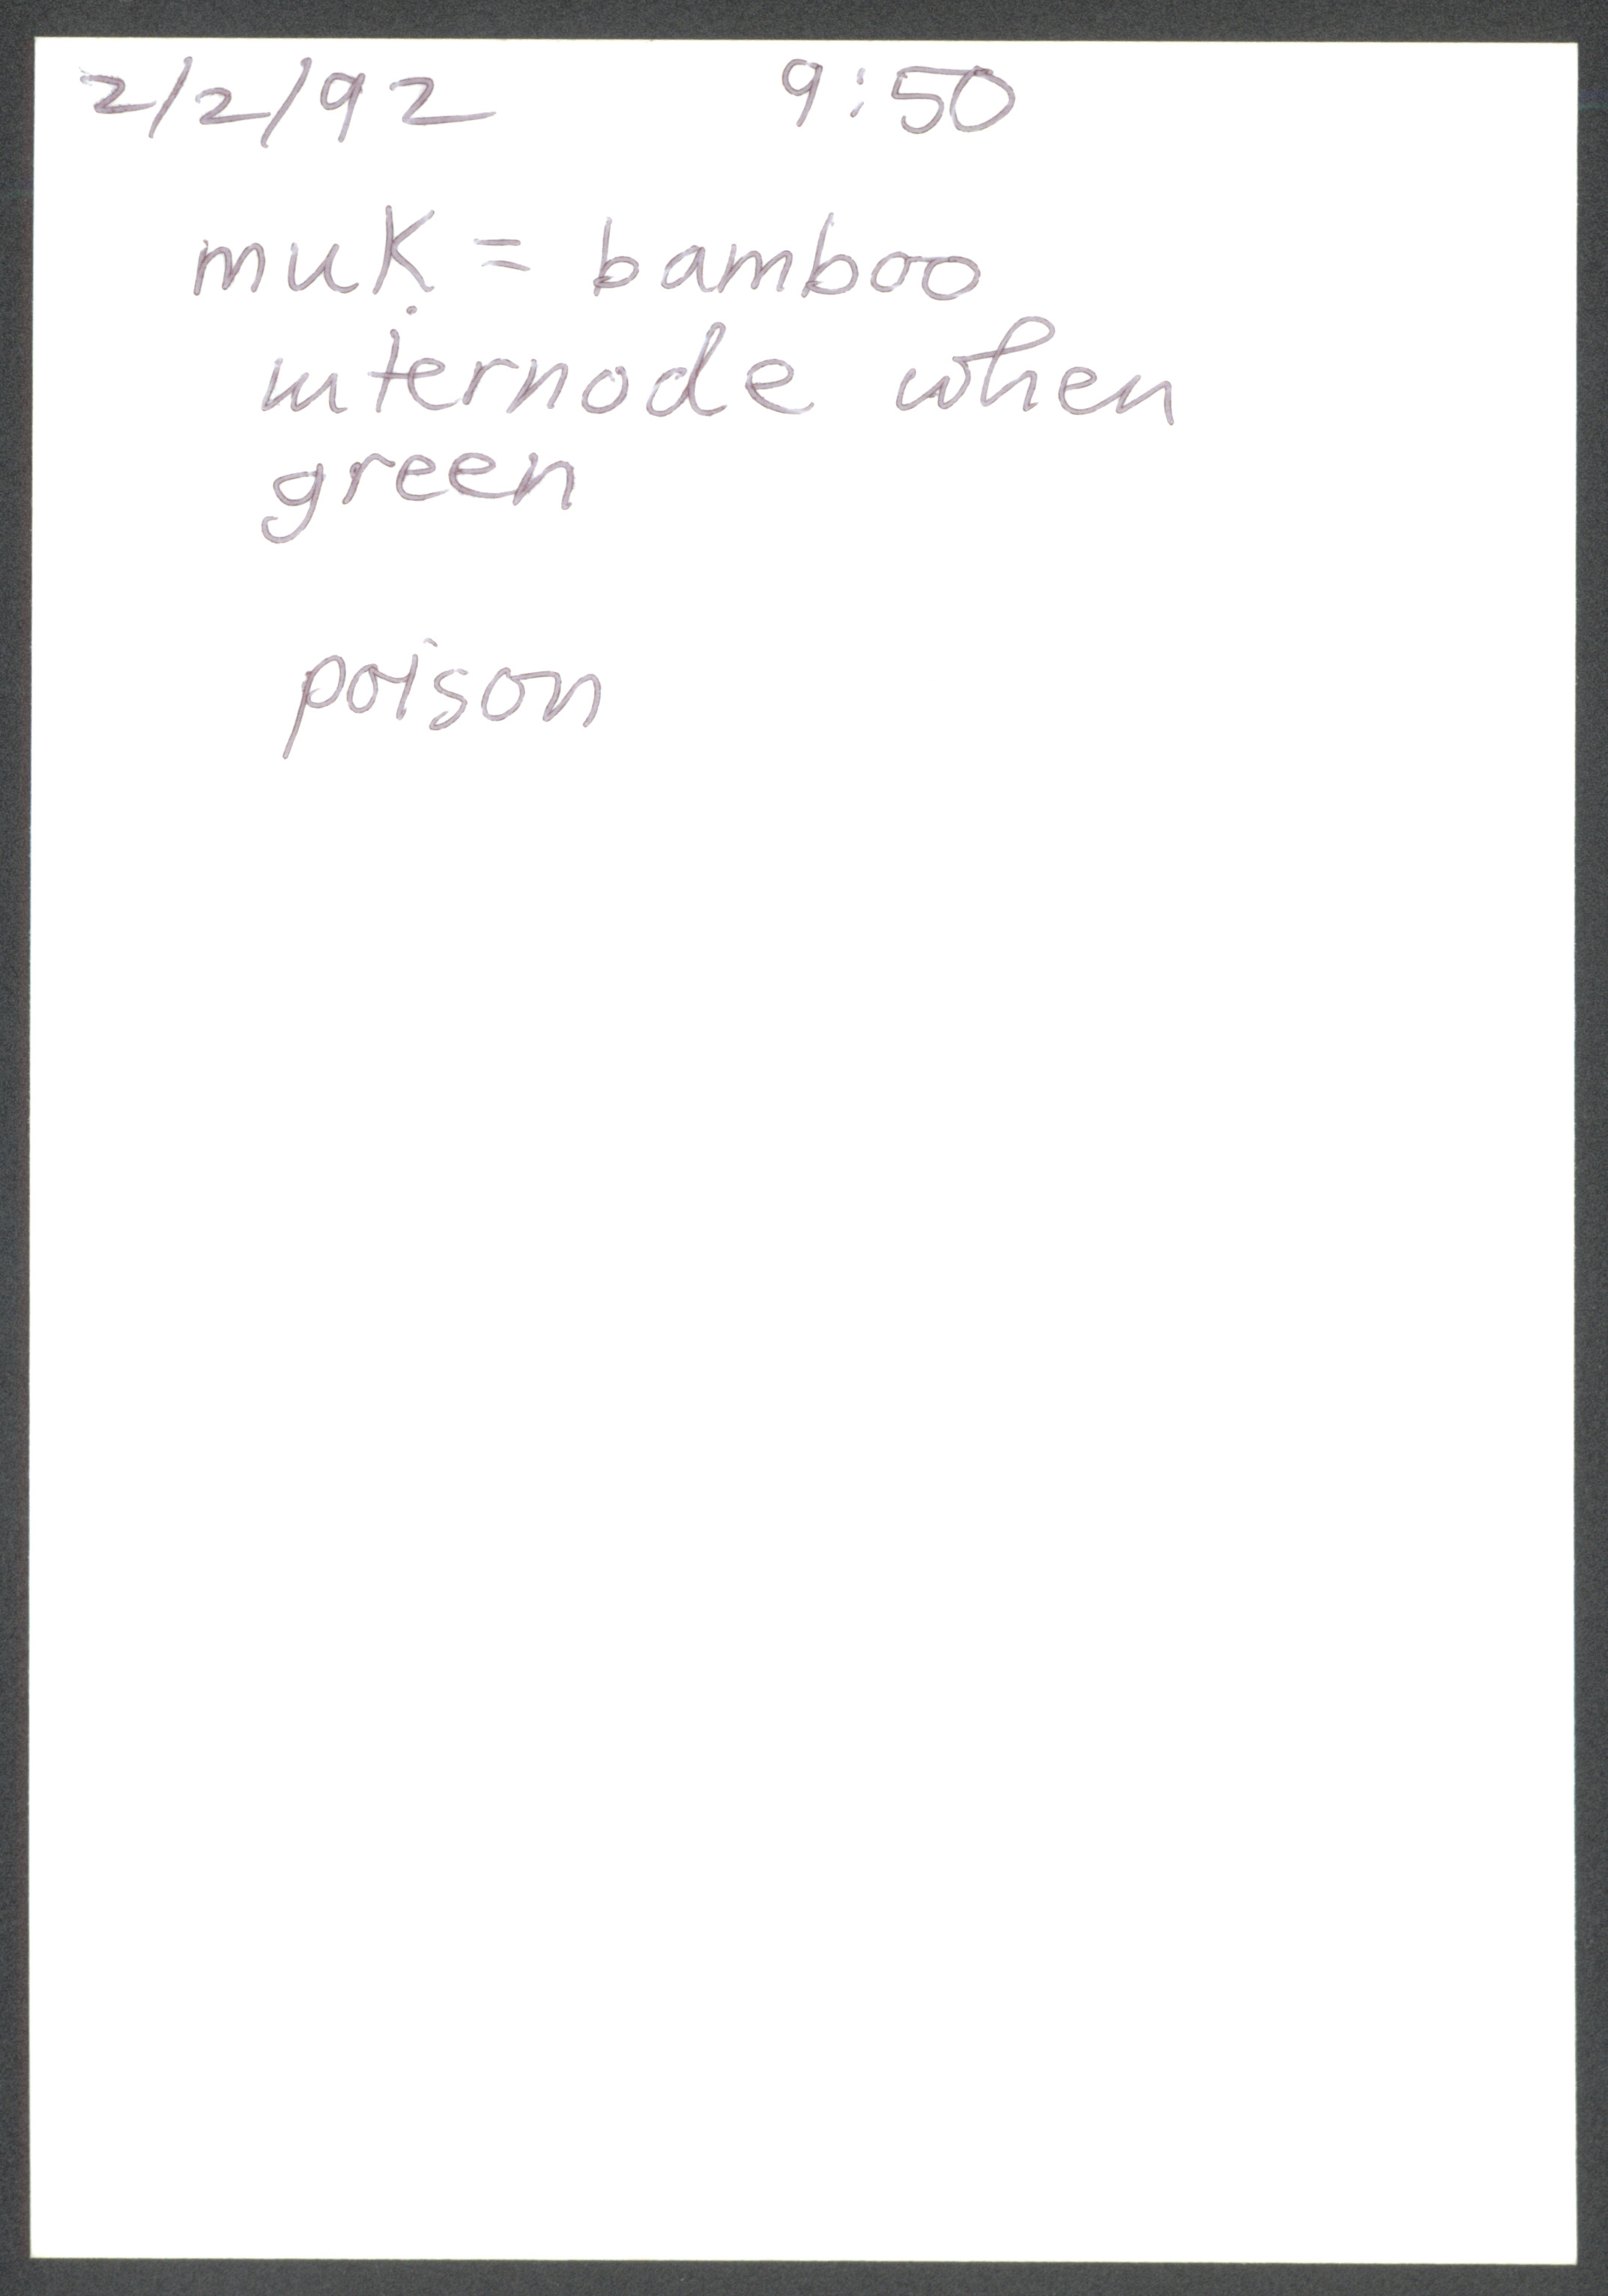 2/2/92 9:50
muk = bamboo
internode when
green
poison